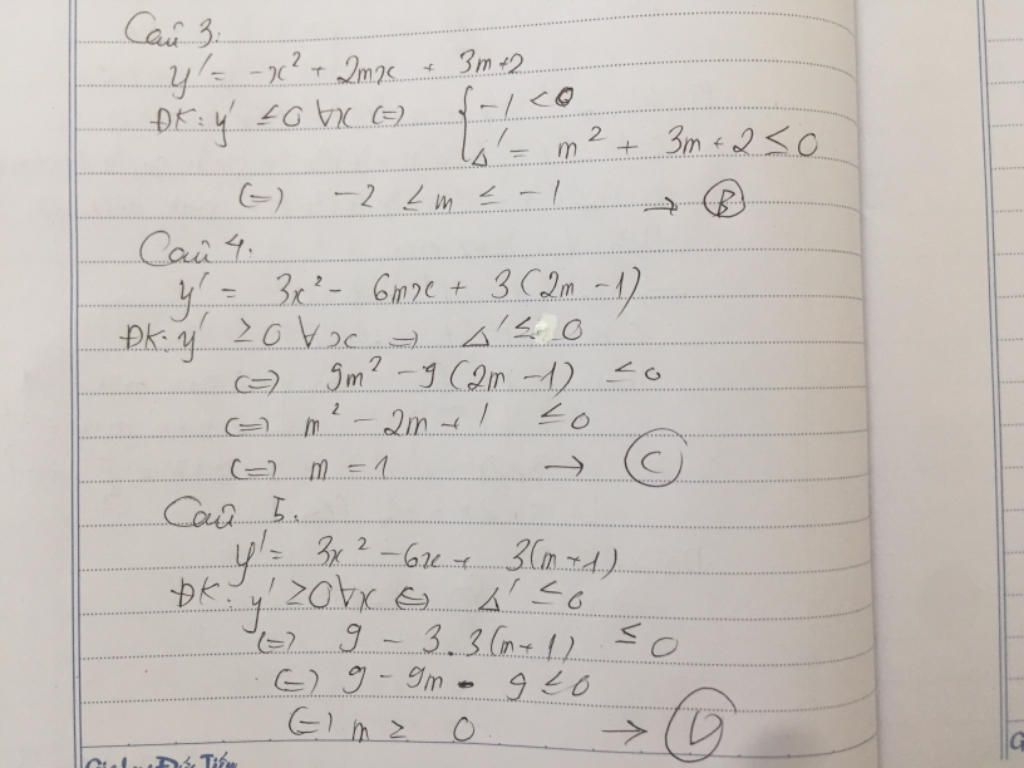 Câu 3.
y' = -x² + 2mx + 3m+2
ĐK: y' ≤0 ∀x (=) { -1 < 0
Δ' = m² + 3m + 2 ≤ 0
(=) -2 ≤ m ≤ -1 → B
Câu 4.
y' = 3x² - 6mx + 3(2m -1)
ĐK: y' ≥ 0 ∀x => Δ' ≤ 0
(=) 9m² - 9(2m -1) ≤ 0
(=) m² - 2m + 1 ≤ 0
(=) m = 1 → C
Câu 5.
y' = 3x² - 6x + 3(m+1)
ĐK: y' ≥0 ∀x (=) Δ' ≤ 0
(=) 9 - 3.3(m+1) ≤ 0
(=) 9 - 9m - 9 ≤ 0
(=) m ≥ 0 → D
Tiến